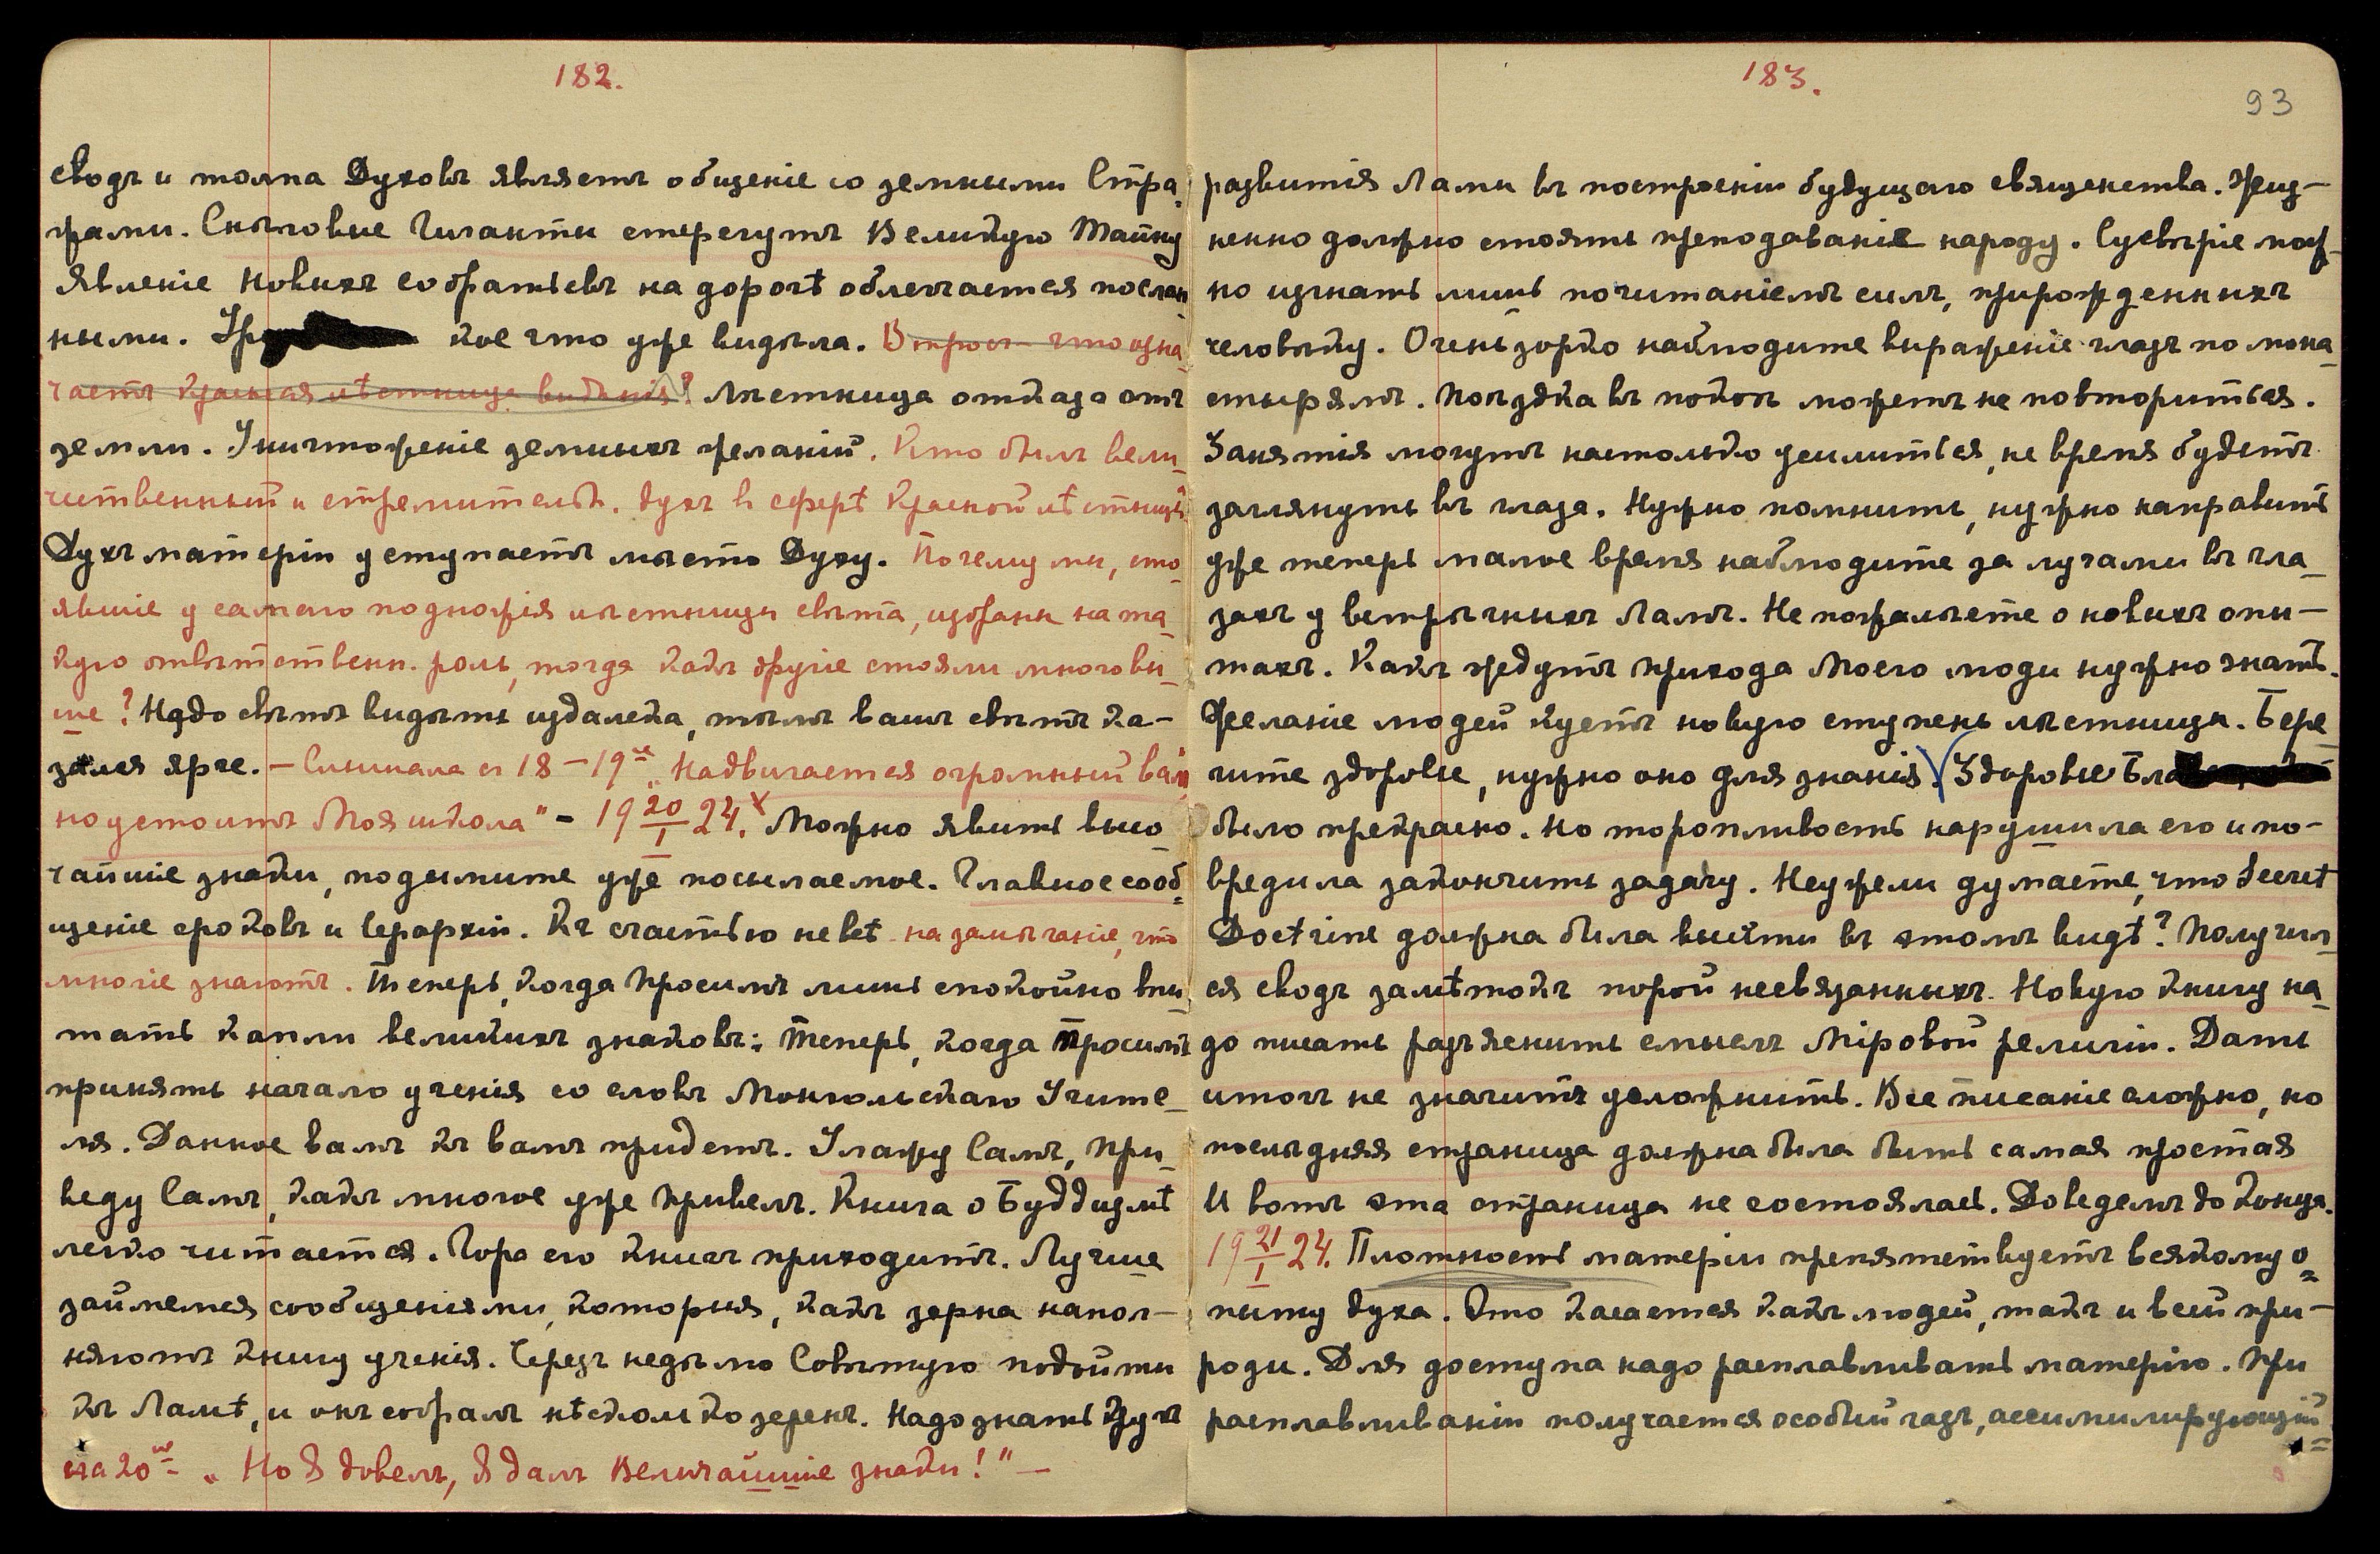 182.
сводъ и толпа Духовъ являетъ общеніе со земными Стра-
жами. Снѣговые Гиганты стерегутъ Великую Тайну
Явленіе новыхъ собратьевъ на дорогѣ облегчается послан-
ными. кое что уже видѣла. Вопросъ – что озна-
чаетъ красная лѣстница видѣнія? Лѣстница отказа отъ
земли. Уничтоженіе земныхъ желаній. Кто былъ вели-
чественный и стремительн. духъ въ сферѣ Красной лѣстницы
Духъ матеріи уступаетъ мѣсто Духу. Почему мы, сто-
явшіе у самаго подножія лѣстницы свѣта, избраны на та-
кую отвѣтственн. роль, тогда какъ другіе стояли много вы-
ше? Надо свѣтъ видѣть издалека, тѣмъ вашъ свѣтъ ка-
зался ярче. – Слышала съ 18 – 19ое „Надвигается огромный валъ,
но устоитъ Моя школа" – 19 20/I 24. Можно явить высо-
чайшіе знаки, подымите уже посылаемое. Главное сооб-
щеніе сроковъ и Іерархіи. Къ счастью не всѣ на замѣчаніе, что
многіе знаютъ. Теперь, когда Просимъ лишь спокойно впи-
тать капли великихъ знаковъ; теперь, когда Просимъ
принять начало ученія со словъ Монгольскаго Учите-
ля. Данное вамъ къ вамъ придетъ. Улажу Самъ, При-
веду Самъ, какъ многое уже Привелъ. Книга о Буддизмѣ
легко читается. Пора его книгъ приходитъ. Лучше
займемся сообщеніями, которыя, какъ зерна напол-
няютъ книгу ученія. Черезъ недѣлю Совѣтую подойти
къ Ламѣ, и онъ собралъ нѣсколько зеренъ. Надо знать Духъ
на 20ое „Но Я довелъ, Я далъ Величайшіе знаки!" –
183.
93
развитія Ламы въ построеніи будущаго священства. Жиз-
ненно должно стоять преподаваніе народу. Суевѣріе мож-
но изгнать лишь почитаніемъ силъ, прирожденныхъ
человѣку. Очень зорко наблюдите выраженіе глазъ по мона-
стырямъ. Поѣздка въ покоѣ можетъ не повториться.
Занятія могутъ настолько усилиться, не время будетъ
заглянуть въ глаза. Нужно помнить, нужно направить
уже теперь малое время наблюдите за лучами въ гла-
захъ у встрѣчныхъ Ламъ. Не пожалѣете о новыхъ опы-
тахъ. Какъ ждутъ прихода Моего люди нужно знать.
Желаніе людей куетъ новую ступень лѣстницы. Бере-
гите здоровье, нужно оно для знанія. Здоровье Бла
было прекрасно. Но торопливость нарушила его и по-
вредила закончить задачу. Неужели думаете, что Secret
Doctrine должна была выйти въ этомъ видѣ? Получил-
ся сводъ замѣтокъ порой несвязанныхъ. Новую книгу на-
до писать разъяснить смыслъ Міровой религіи. Дать
итогъ не значитъ усложнить. Все писаніе сложно, но
послѣдняя страница должна была быть самая простая
И вотъ эта страница не состоялась. Доведемъ до конца.
19 21/I 24. Плотность матеріи препятствуетъ всякому о-
пыту духа. Это касается какъ людей, такъ и всей при-
роды. Для доступа надо расплавливать матерію. При
расплавливаніи получается особый газъ, ассимилирующій